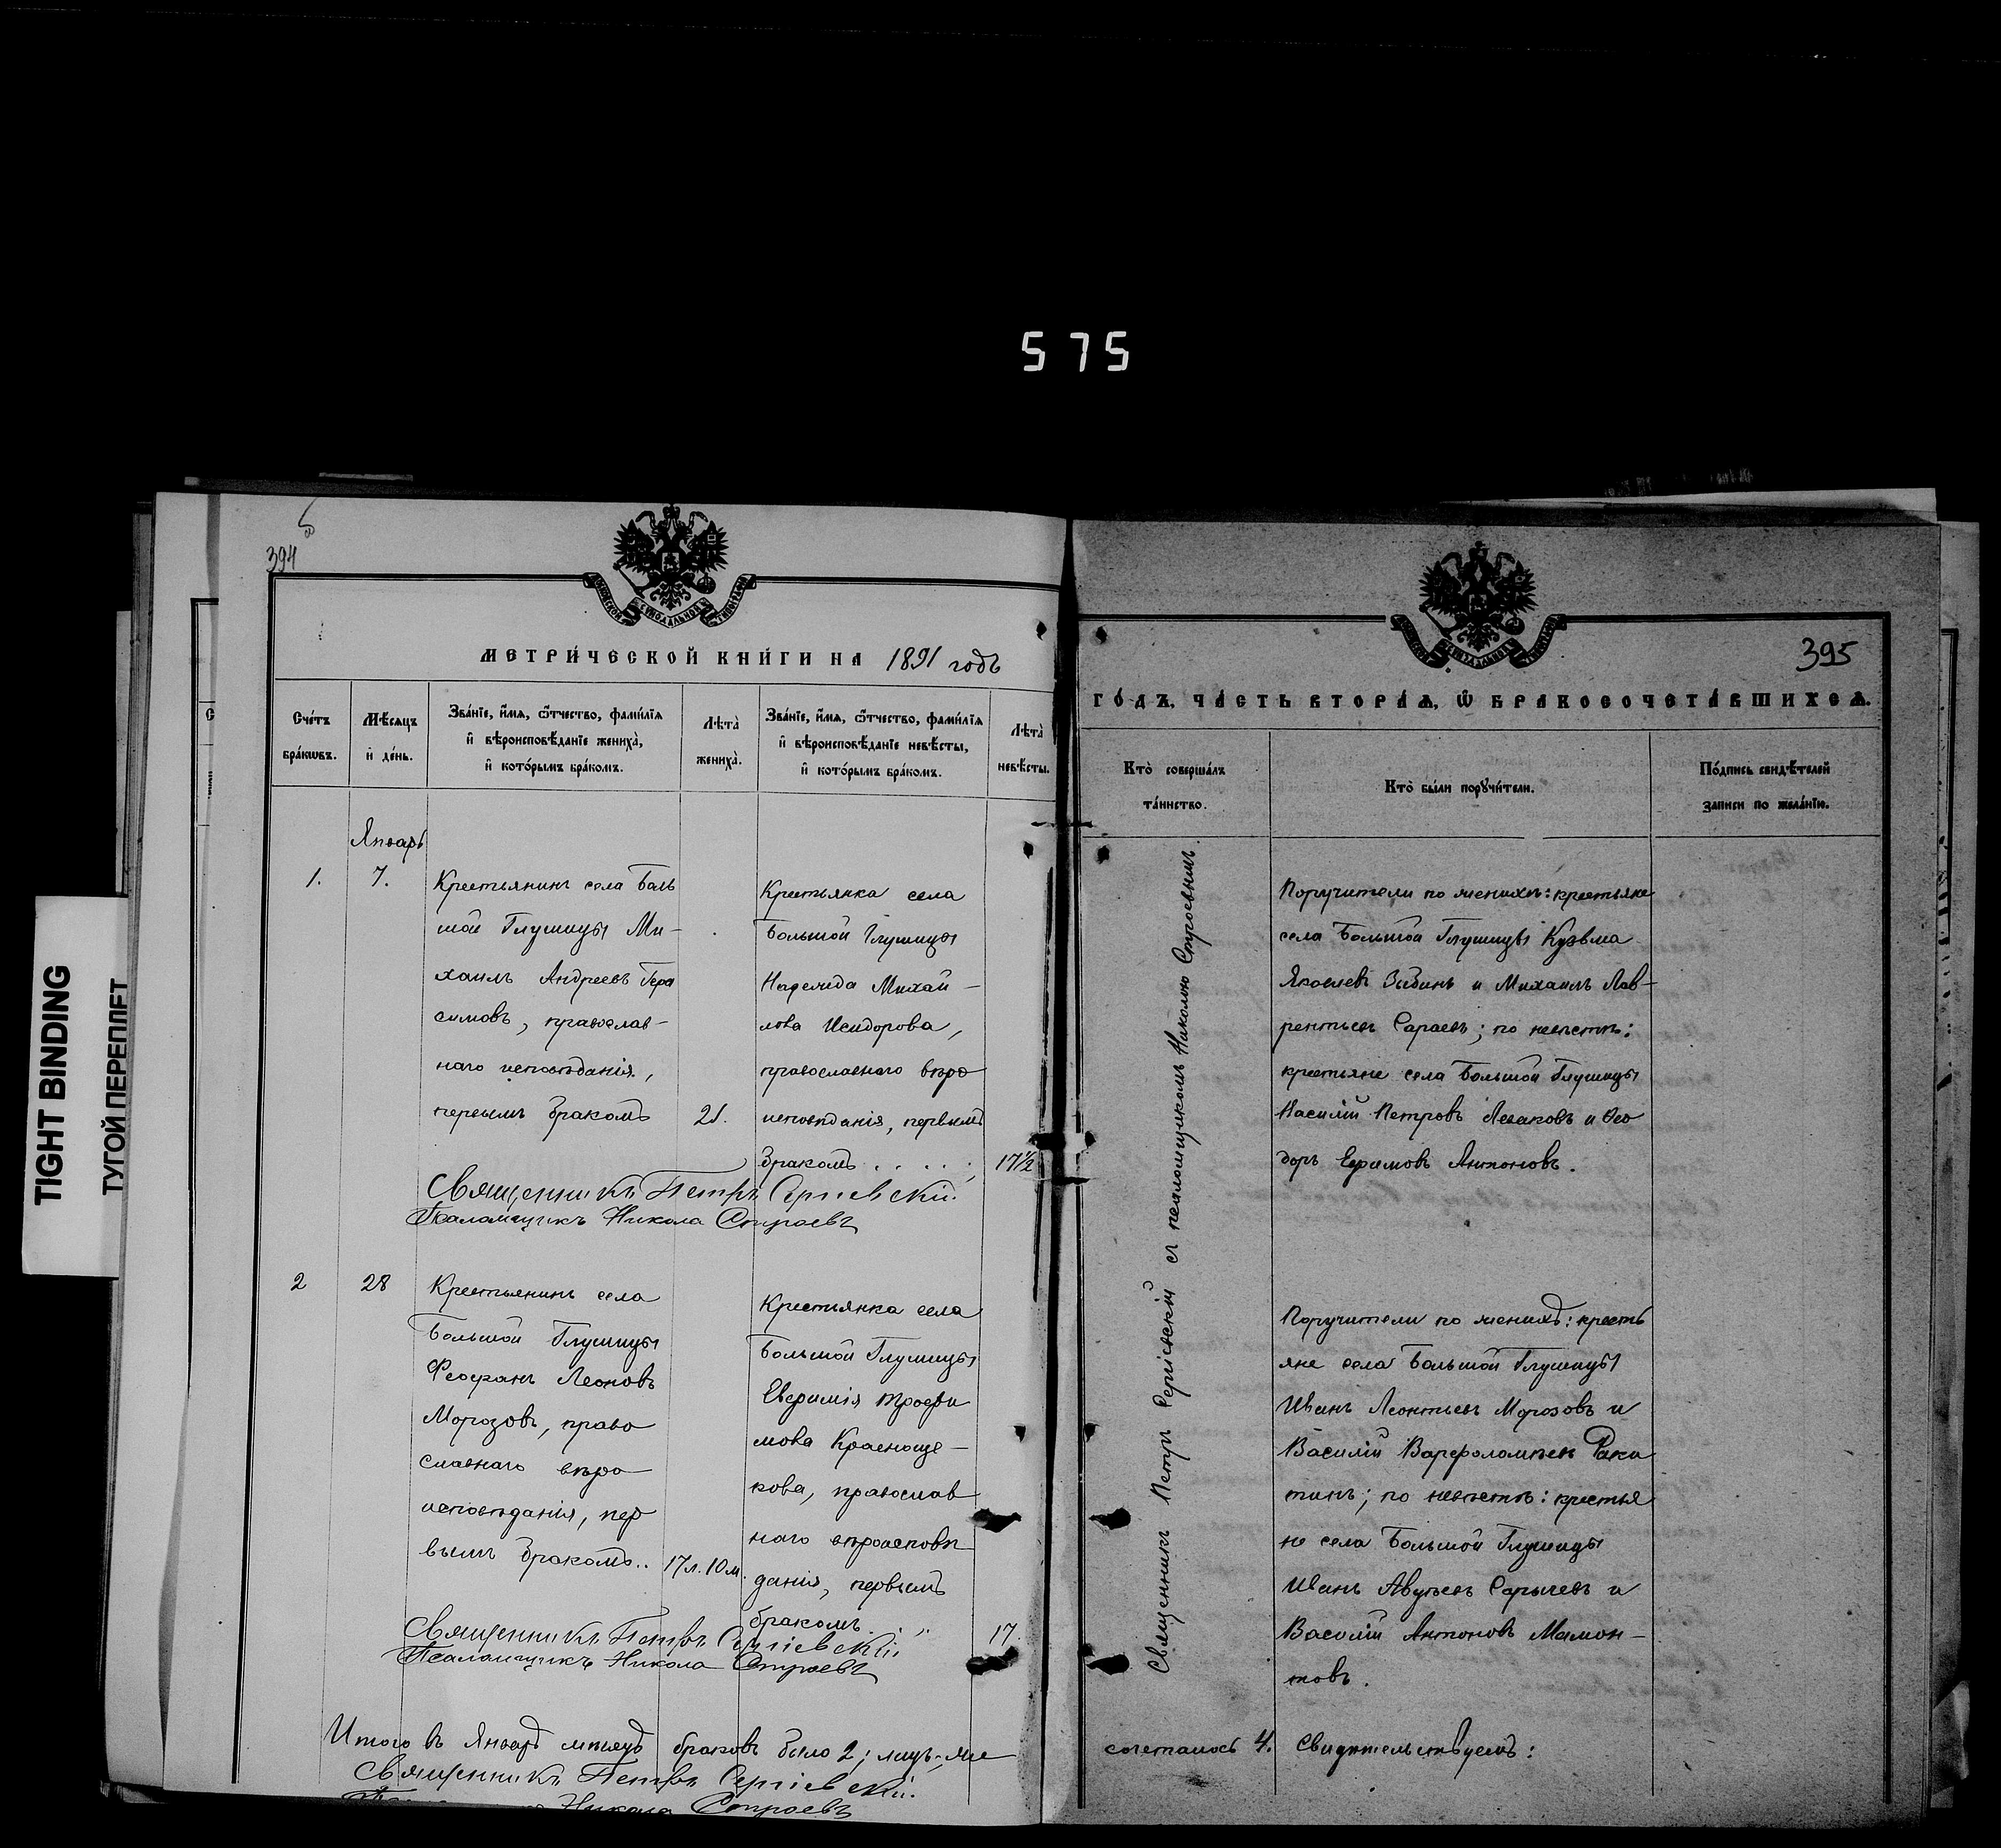 575
TIGHT BINDING
ТУГОЙ ПЕРЕПЛЕТ
394
МЕТРИ́ЧЕСКОЙ КНИ́ГИ НА 1891 годъ
Сче́тъ бра́кѡвъ.
Мѣ́сяцъ и҆ де́нь.
Зва́нїе, и҆́мя, ѻ҆́тчество, фами́лїя и҆ вѣроисповѣ́данїе жениха̀, и҆ кото́рымъ бра́комъ.
Лѣта̀ жениха̀.
Зва́нїе, и҆́мя, ѻ҆́тчество, фами́лїя и҆ вѣроисповѣ́данїе невѣ́сты, и҆ кото́рымъ бра́комъ.
Лѣта̀ невѣ́сты.
Январь
1.
7.
Крестьянинъ села Боль
шой Глушицы Ми-
хаилъ Андреевъ Гера
симовъ, православ-
наго исповѣданія,
первымъ бракомъ
21.
Крестьянка села
Большой Глушицы
Надежда Михай-
лова Исидорова,
православнаго вѣро
исповѣданія, первымъ
бракомъ . . . .
17½
Священникъ Петръ Сергіевскій.
Псаломщикъ Никола Строевъ
2
28
Крестьянинъ села
Большой Глушицы
Феофанъ Леоновъ
Морозовъ, право
славнаго вѣро
исповѣданія, пер
вымъ бракомъ..
17 л. 10 м.
Крестьянка села
Большой Глушицы
Евфимія Трофи
мова Красноще-
кова, православ
наго вѣроисповѣ
данія, первымъ
бракомъ
17.
Священникъ Петръ Сергіевскій
Псаломщикъ Никола Строевъ
Итого въ Январѣ мѣсяцѣ браковъ было 2; лицъ-же
Священникъ Петръ Сергіевскій.
Никола Строевъ
395
ГО́ДЪ, ЧА́СТЬ ВТОРА́Я, Ѡ҆ БРАКОСОЧЕТА́ВШИХСЯ.
Кто̀ соверша́лъ та́инство.
Кто̀ бы́ли порꙋчи́тели.
По́дпись свидѣ́телей за́писи по жела́нїю.
Священникъ Петръ Сергіевскій съ псаломщикомъ Николою Строевымъ.
Поручители по женихѣ: крестьяне
села Большой Глушицы Кузьма
Яковлевъ Зибинъ и Михаилъ Лав-
рентьевъ Сараевъ; по невѣстѣ:
крестьяне села Большой Глушицы
Василій Петровъ и Ѳео
доръ Ефимовъ Антоновъ.
Поручители по женихѣ: кресть
яне села Большой Глушицы
Иванъ Леонтьевъ Морозовъ и
Василій Варфоломѣевъ Раки
тинъ; по невѣстѣ: крестья
не села Большой Глушицы
Иванъ Сарычевъ и
Василій Антоновъ Мамон-
товъ.
сочеталось 4. Свидѣтельствуемъ: